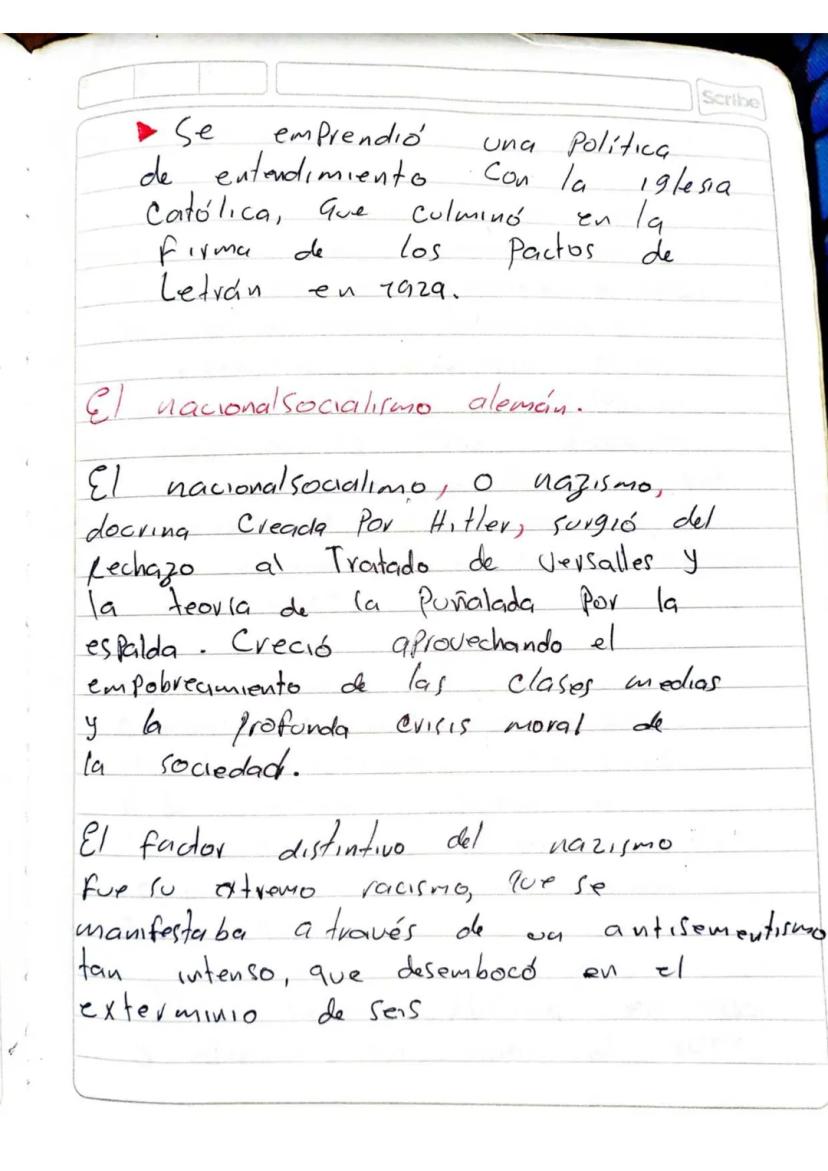 Scribe
Se emprendió una Política
de entendimiento Con la iglesia
Católica, que culminó en la
firma de los Pactos de
Letrán en 1929.
El nacionalsocialismo alemán.
El nacionalsocialimo, o nazismo,
docrina Creada Por Hitler, surgió del
Rechazo al Tratado de Versalles y
la teoría de la Puñalada Por la
espalda. Creció aprovechando el
empobrecimiento de las clases medias
y la profunda crisis moral de
la sociedad.
El factor distintivo del nazismo
fue su extremo racismo, que se
manifestaba a través de un antisementismo
tan intenso, que desembocó en el
exterminio de seis